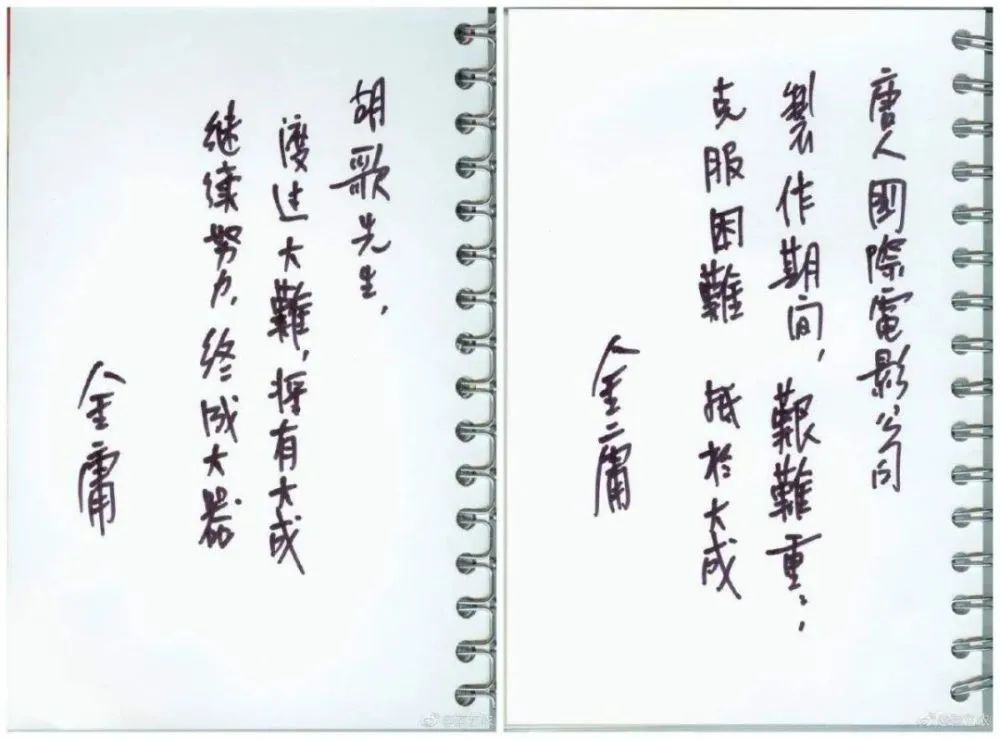 胡歌先生，
渡过大難，将有大成
继续努力，终成大器
金庸
唐人國際電影公司
製作期间，艱難重重，
克服困難 抵於大成
金庸